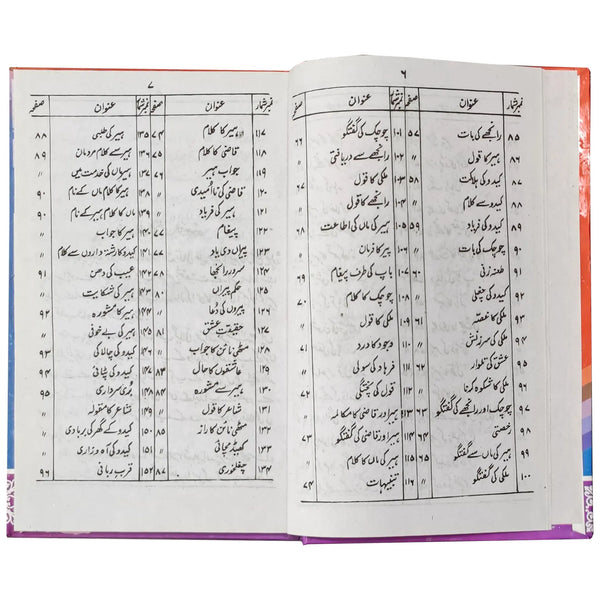 ۶
نمبر شمار عنوان صفحہ نمبر شمار عنوان صفحہ
۸۵ رانجھے کی بات ۵۷ ۱۰۱ چوچک کی گفتگو ۶۶
۸۶ ہیر کا قول 〃 ۱۰۲ رانجھے سے دریافتی 〃
۸۷ کیدو کی ہلاکت ۵۸ ۱۰۳ ملکی کا قول ۶۷
۸۸ کیدو سے کلام 〃 ۱۰۴ رانجھے کا قول 〃
۸۹ کیدو کی فریاد ۵۹ ۱۰۵ ہیر کی ماں کی اطاعت ۶۸
۹۰ چوچک کی بات 〃 ۱۰۶ پیر کا فرمان 〃
۹۱ طعنہ زنی ۶۰ ۱۰۷ باپ کی طرف پیغام ۶۹
۹۲ کیدو کی چغلی 〃 ۱۰۸ چوچک کا کلام 〃
۹۳ ملکی کا غصہ ۶۱ ۱۰۹ ملکی کا قول ۷۰
۹۴ ملکی کی سرزنش 〃 ۱۱۰ وجود کا درد ۷۱
۹۵ عشق کی تلوار 〃 ۱۱۱ فرہاد کی سولی 〃
۹۶ ملکی کا شکوہ کرنا 〃 ۱۱۲ قول کی پختگی ۷۲
۹۷ چوچک اور رانجھے کی گفتگو ۶۳ ۱۱۳ ہیر اور قاضی کا مکالمہ 〃
۹۸ رخصتی ۶۴ ۱۱۴ ہیر اور قاضی کی گفتگو ۷۳
۹۹ ہیر سے گفتگو ۶۵ ۱۱۵ ہیر کی ماں کا کلام 〃
۱۰۰ ملکی کی گفتگو 〃 ۱۱۶ تنبیہات ۷۴
۷
نمبر شمار عنوان صفحہ نمبر شمار عنوان صفحہ
۱۱۷ ہیر کا کلام ۷۴ ۱۳۵ ہیر کی طلبی ۸۸
۱۱۸ قاضی کا کلام ۷۵ ۱۳۶ ہیر سے کلام مردمان ۸۹
۱۱۹ جواب ہیر ۷۶ ۱۳۷ ہیر ماں کی خدمت میں 〃
۱۲۰ قاضی کی ناامیدی 〃 ۱۳۸ ہیر کا کلام ماں کے نام ۹۰
۱۲۱ ہیر کی فریاد 〃 ۱۳۹ ماں کا کلام ہیر کے نام ۹۰
۱۲۲ پیغام ۷۷ ۱۴۰ ہیر کا جواب 〃
۱۲۳ پیراں دی یاد ۷۷ ۱۴۱ کیدو کا رشتہ داروں سے کلام 〃
۱۲۴ سرور رانجھا ۷۸ ۱۴۲ عجیب کی دھن ۹۱
۱۲۵ حکم پیراں 〃 ۱۴۳ ہیر کی شکایت 〃
۱۲۶ پیروں کی دعا 〃 ۱۴۴ ہیر کا مشورہ ۹۲
۱۲۷ حقیقت عشق ۸۱ ۱۴۵ ہیر کی بے خوفی 〃
۱۲۸ مٹھی نائن کا جواب 〃 ۱۴۶ کیدو کی چالاکی ۹۳
۱۲۹ عاشقوں کا حال ۸۳ ۱۴۷ کیدو کی پٹائی ۹۴
۱۳۰ ہیر سے مشورہ ۸۴ ۱۴۸ سرداری ۹۵
۱۳۱ شاعر کا قول 〃 ۱۴۹ شاعر کا مقولہ 〃
۱۳۲ مٹھی نائن کا راز ۸۵ ۱۵۰ کیدو کے گھر کی بربادی 〃
۱۳۳ کھیڈ مچائی 〃 ۱۵۱ کیدو کی آہ و زاری 〃
۱۳۴ چغلخوری ۸۷ ۱۵۲ قرب ربانی ۹۶